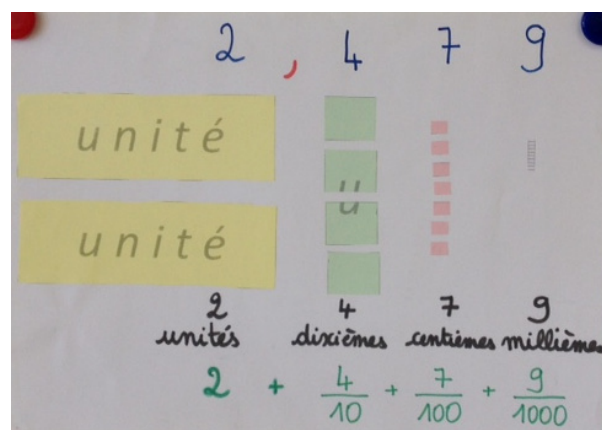 2 , 4 7 9
unité
u
unité
2 4 7 9
unités dixièmes centièmes millièmes
2 + 4/10 + 7/100 + 9/1000